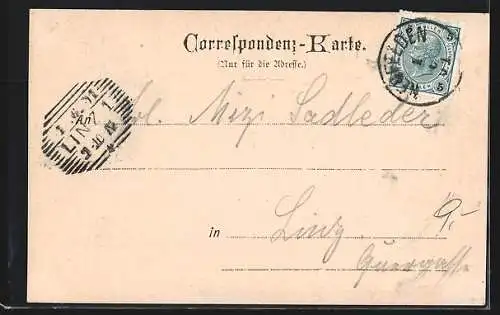 Correspondenz-Karte.
(Nur für die Adresse.)
NEUFELDEN
LINZ 1
Frl. Mizi Sadleder
in Linz
Quergasse
9,-